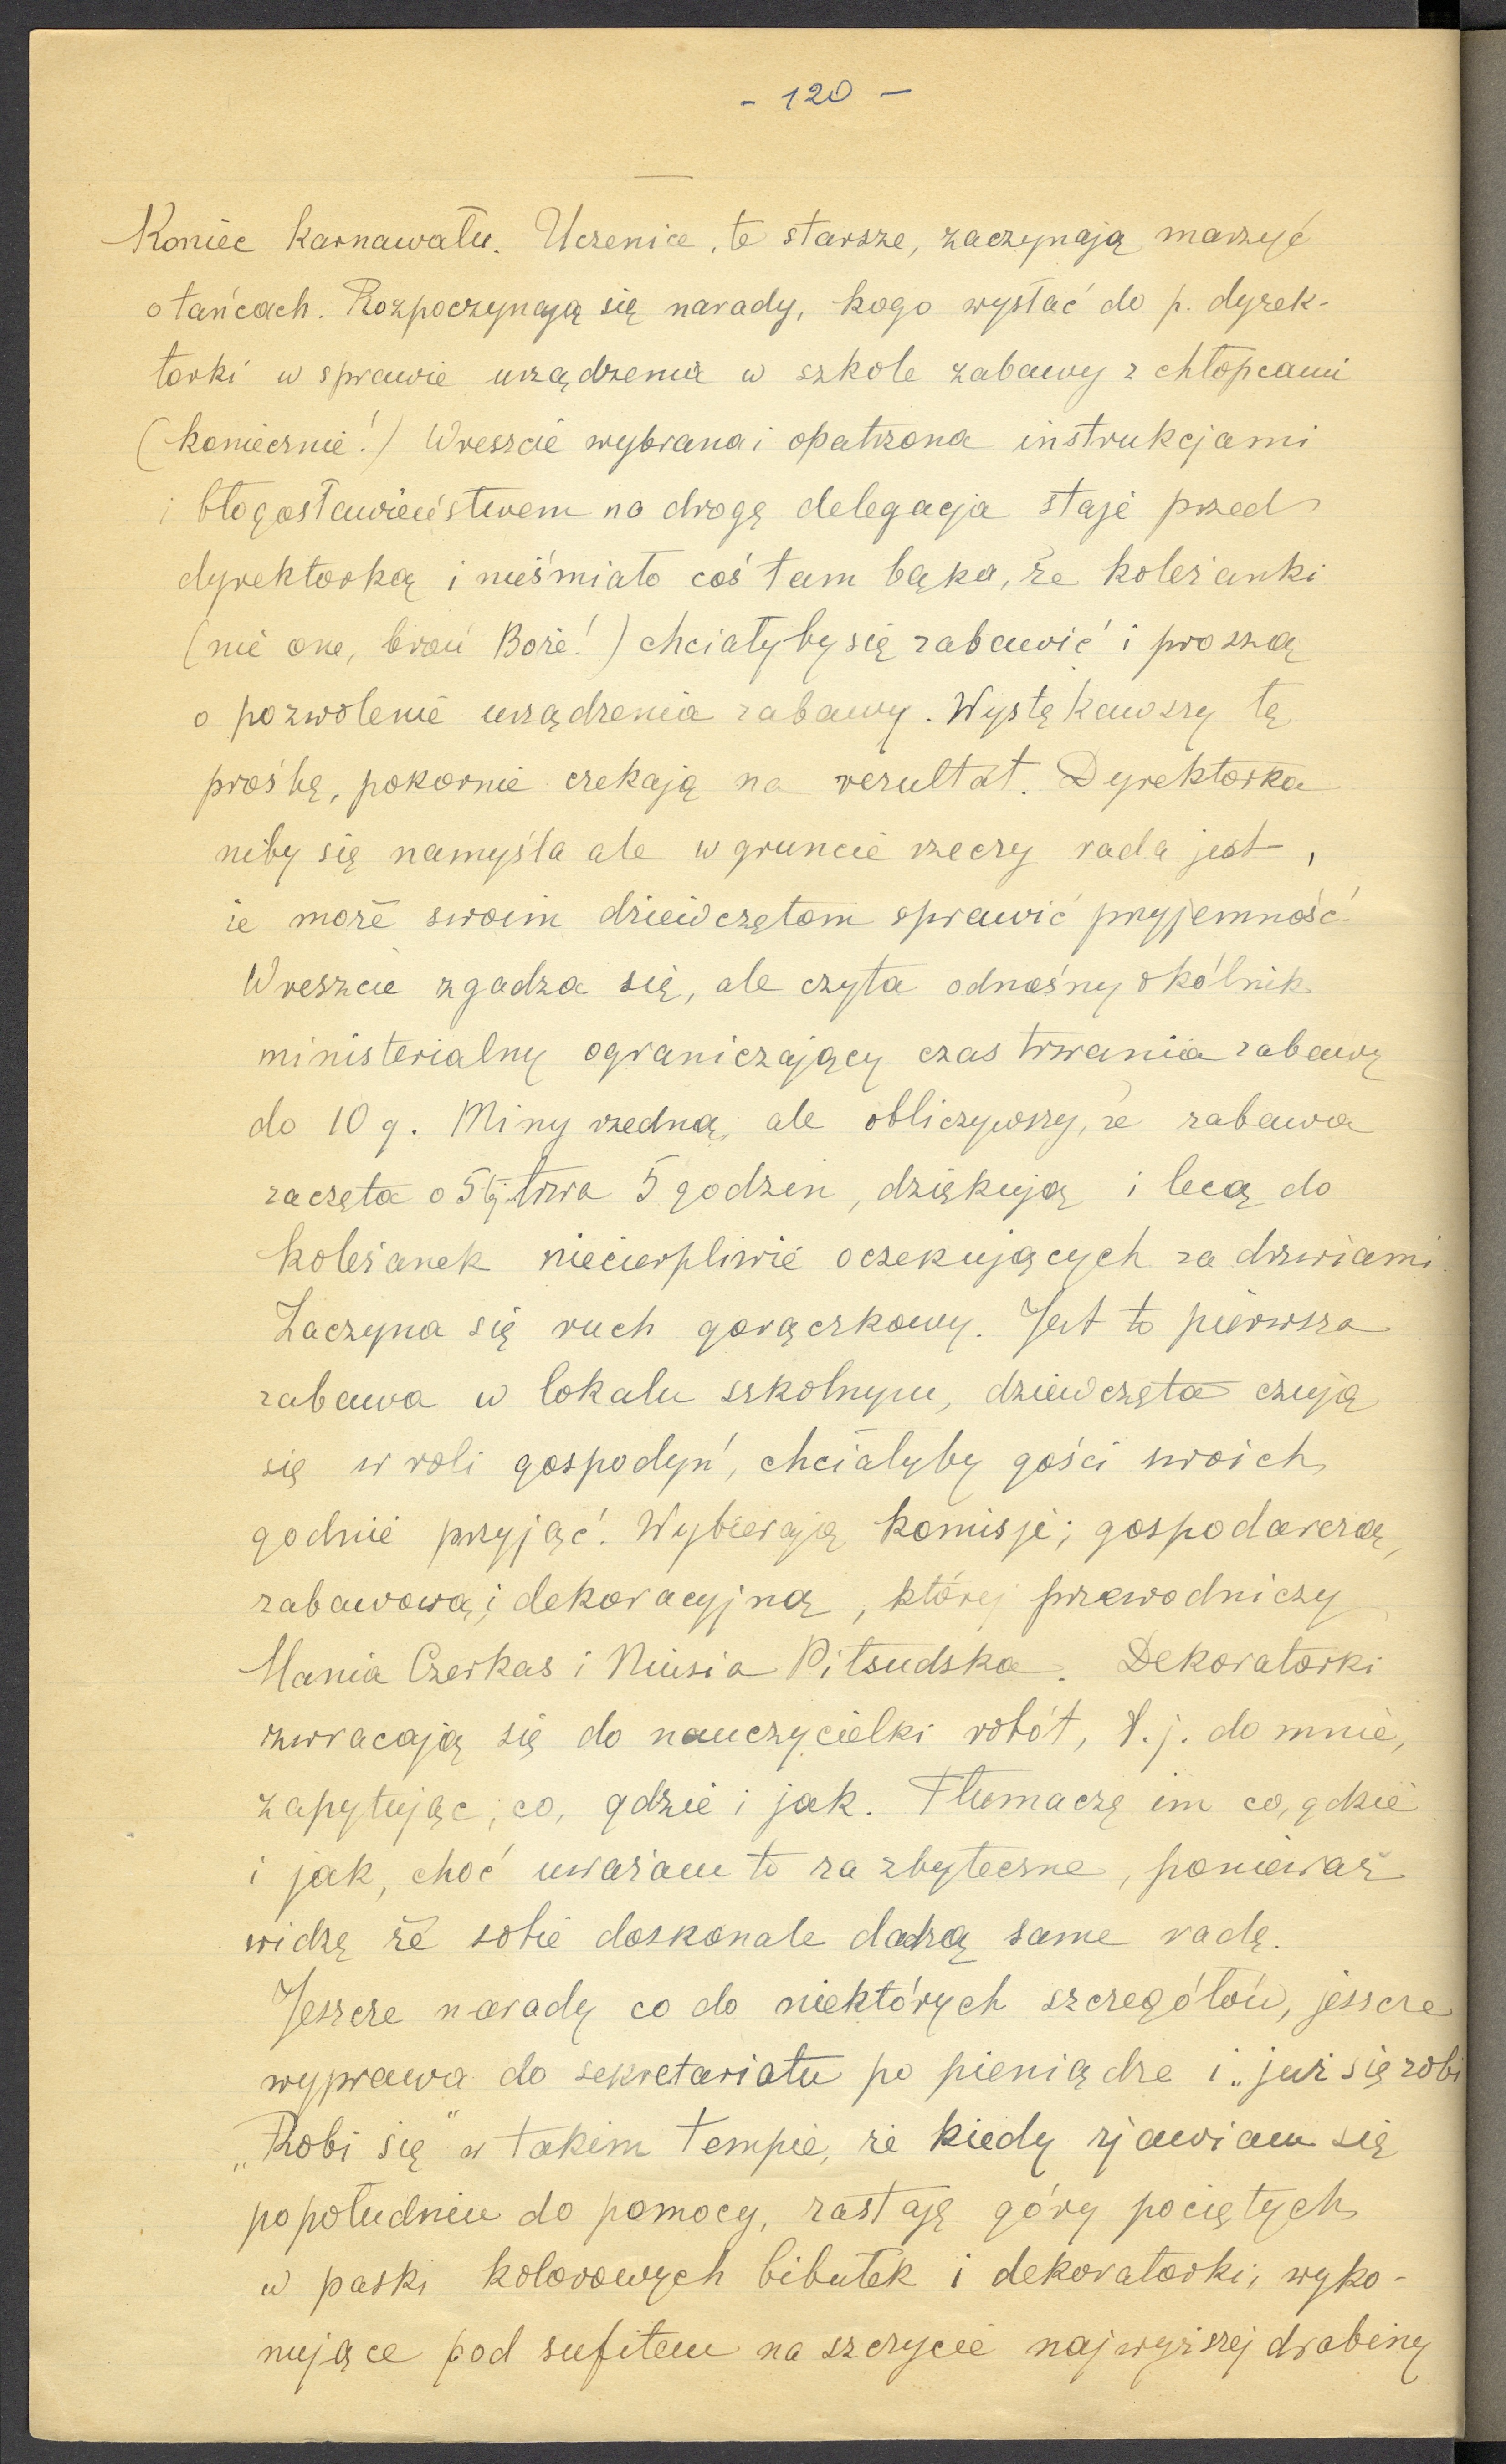 - 120 -
Koniec karnawału. Uczenice, te starsze, zaczynają marzyć
o tańcach. Rozpoczynają się narady, kogo wysłać do p. dyrek-
torki w sprawie urządzenia w szkole zabawy z chłopcami
(koniecznie!) Wreszcie wybrana i opatrzona instrukcjami
i błogosławieństwem na drogę delegacja staje przed
dyrektorką i nieśmiało coś tam bąka, że koleżanki
(nie one, broń Boże!) chciałyby się zabawić i proszą
o pozwolenie urządzenia zabawy. Wystękawszy tę
prośbę, pokornie czekają na rezultat. Dyrektorka
niby się namyśla ale w gruncie rzeczy rada jest,
że może swoim dziewczętom sprawić przyjemność.
Wreszcie zgadza się, ale czyta odnośny okólnik
ministerialny ograniczający czas trwania zabawy
do 10 g. Miny rzedną, ale obliczywszy, że zabawa
zaczęta o 5tej trwa 5 godzin, dziękują i lecą do
koleżanek niecierpliwie oczekujących za drzwiami.
Zaczyna się ruch gorączkowy. Jest to pierwsza
zabawa w lokalu szkolnym, dziewczęta czują
się w roli gospodyń, chciałyby gości swoich
godnie przyjąć. Wybierają komisje; gospodarczą,
zabawową i dekoracyjną, której przewodniczy
Mania Czerkas i Niusia Piłsudska. Dekoratorki
zwracają się do nauczycielki robót, t.j. do mnie,
zapytując, co, gdzie i jak. Tłumaczę im co, gdzie
i jak, choć uważam to za zbyteczne, ponieważ
widzę że sobie doskonale dadzą same radę.
Jeszcze narady co do niektórych szczegółów, jeszcze
wyprawa do sekretariatu po pieniądze i „już się robi
„Robi się" w takim tempie, że kiedy zjawiam się
popołudniu do pomocy, zastaję góry pociętych
w paski kolorowych bibułek i dekoratorki, wyko-
nujące pod sufitem na szczycie najwyższej drabiny